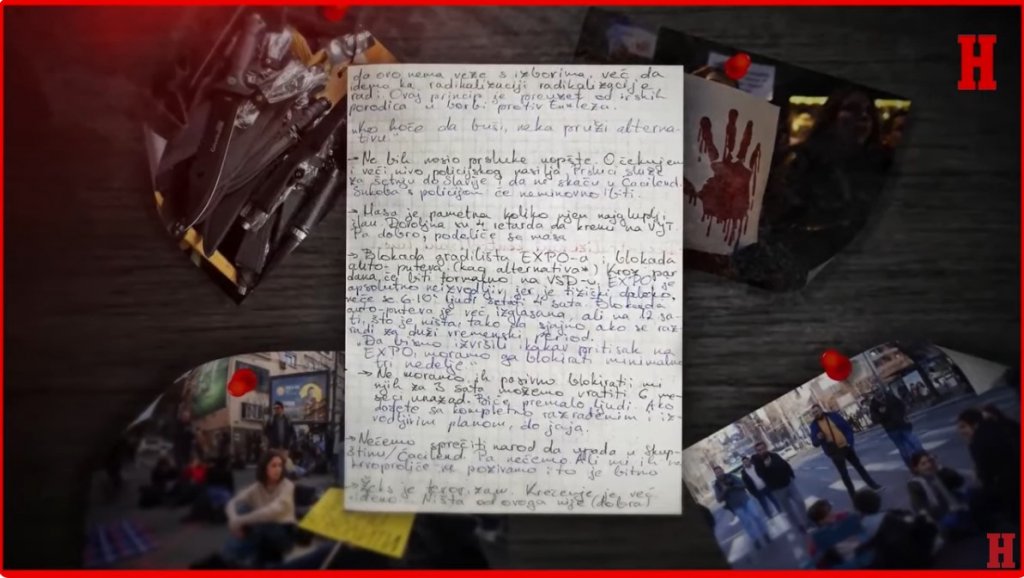 H
da ovo nema veze s izborima, već da
idemo ka radikalizaciji radikalizacije
radi. Ovaj princip je preuzet od irskih
porodica u borbi protiv Engleza.
"Ako hoće da buši, neka pruži alterna-
tivu"
→ Ne bih nosio prsluke uopšte. Očekujem
i veći nivo policijskog nasilja. Prsluci služe
za šetnju do Slavije i da ne skaču u Ćacilend.
Sukoba s policijom će neminovno biti.
→ Masa je pametna koliko njen najgluplji
član. Dovoljna su 4 retarda da krenu na
Pa dobro, podeliće se masa
→ Blokada gradilišta EXPO-a i blokada
auto-puteva (kao alternativa*) Kroz par
dana će biti formalno na VSD-u, EXPO je
apsolutno neizvodljiv, jer je fizički daleko,
neće se 6·10⁴ ljudi šetati 4 sata. Blokada
auto-puteva je već izglasana, ali na 12 sa-
ti, što je ništa, tako da sjajno, ako se raz-
radi za duži vremenski period.
"Da bismo izvršili ikakav pritisak na
EXPO, moramo ga blokirati minimalno
tri nedelje"
→ Ne moramo ih pasivno blokirati; mi
njih za 3 sata možemo vratiti 6 me-
seci unazad. Biće premalo ljudi. Ako
dođete sa kompletno razrađenim i iz-
vodljivim planom, do jaja.
→ Nećemo sprečiti narod da upada u skup-
štinu/Ćacilend. Pa nećemo. Ali mi ih na
krvoproliće ne pozivamo i to je bitno
je terorizam. Krečenje je već
Ništa od ovoga nije (dobra)
H